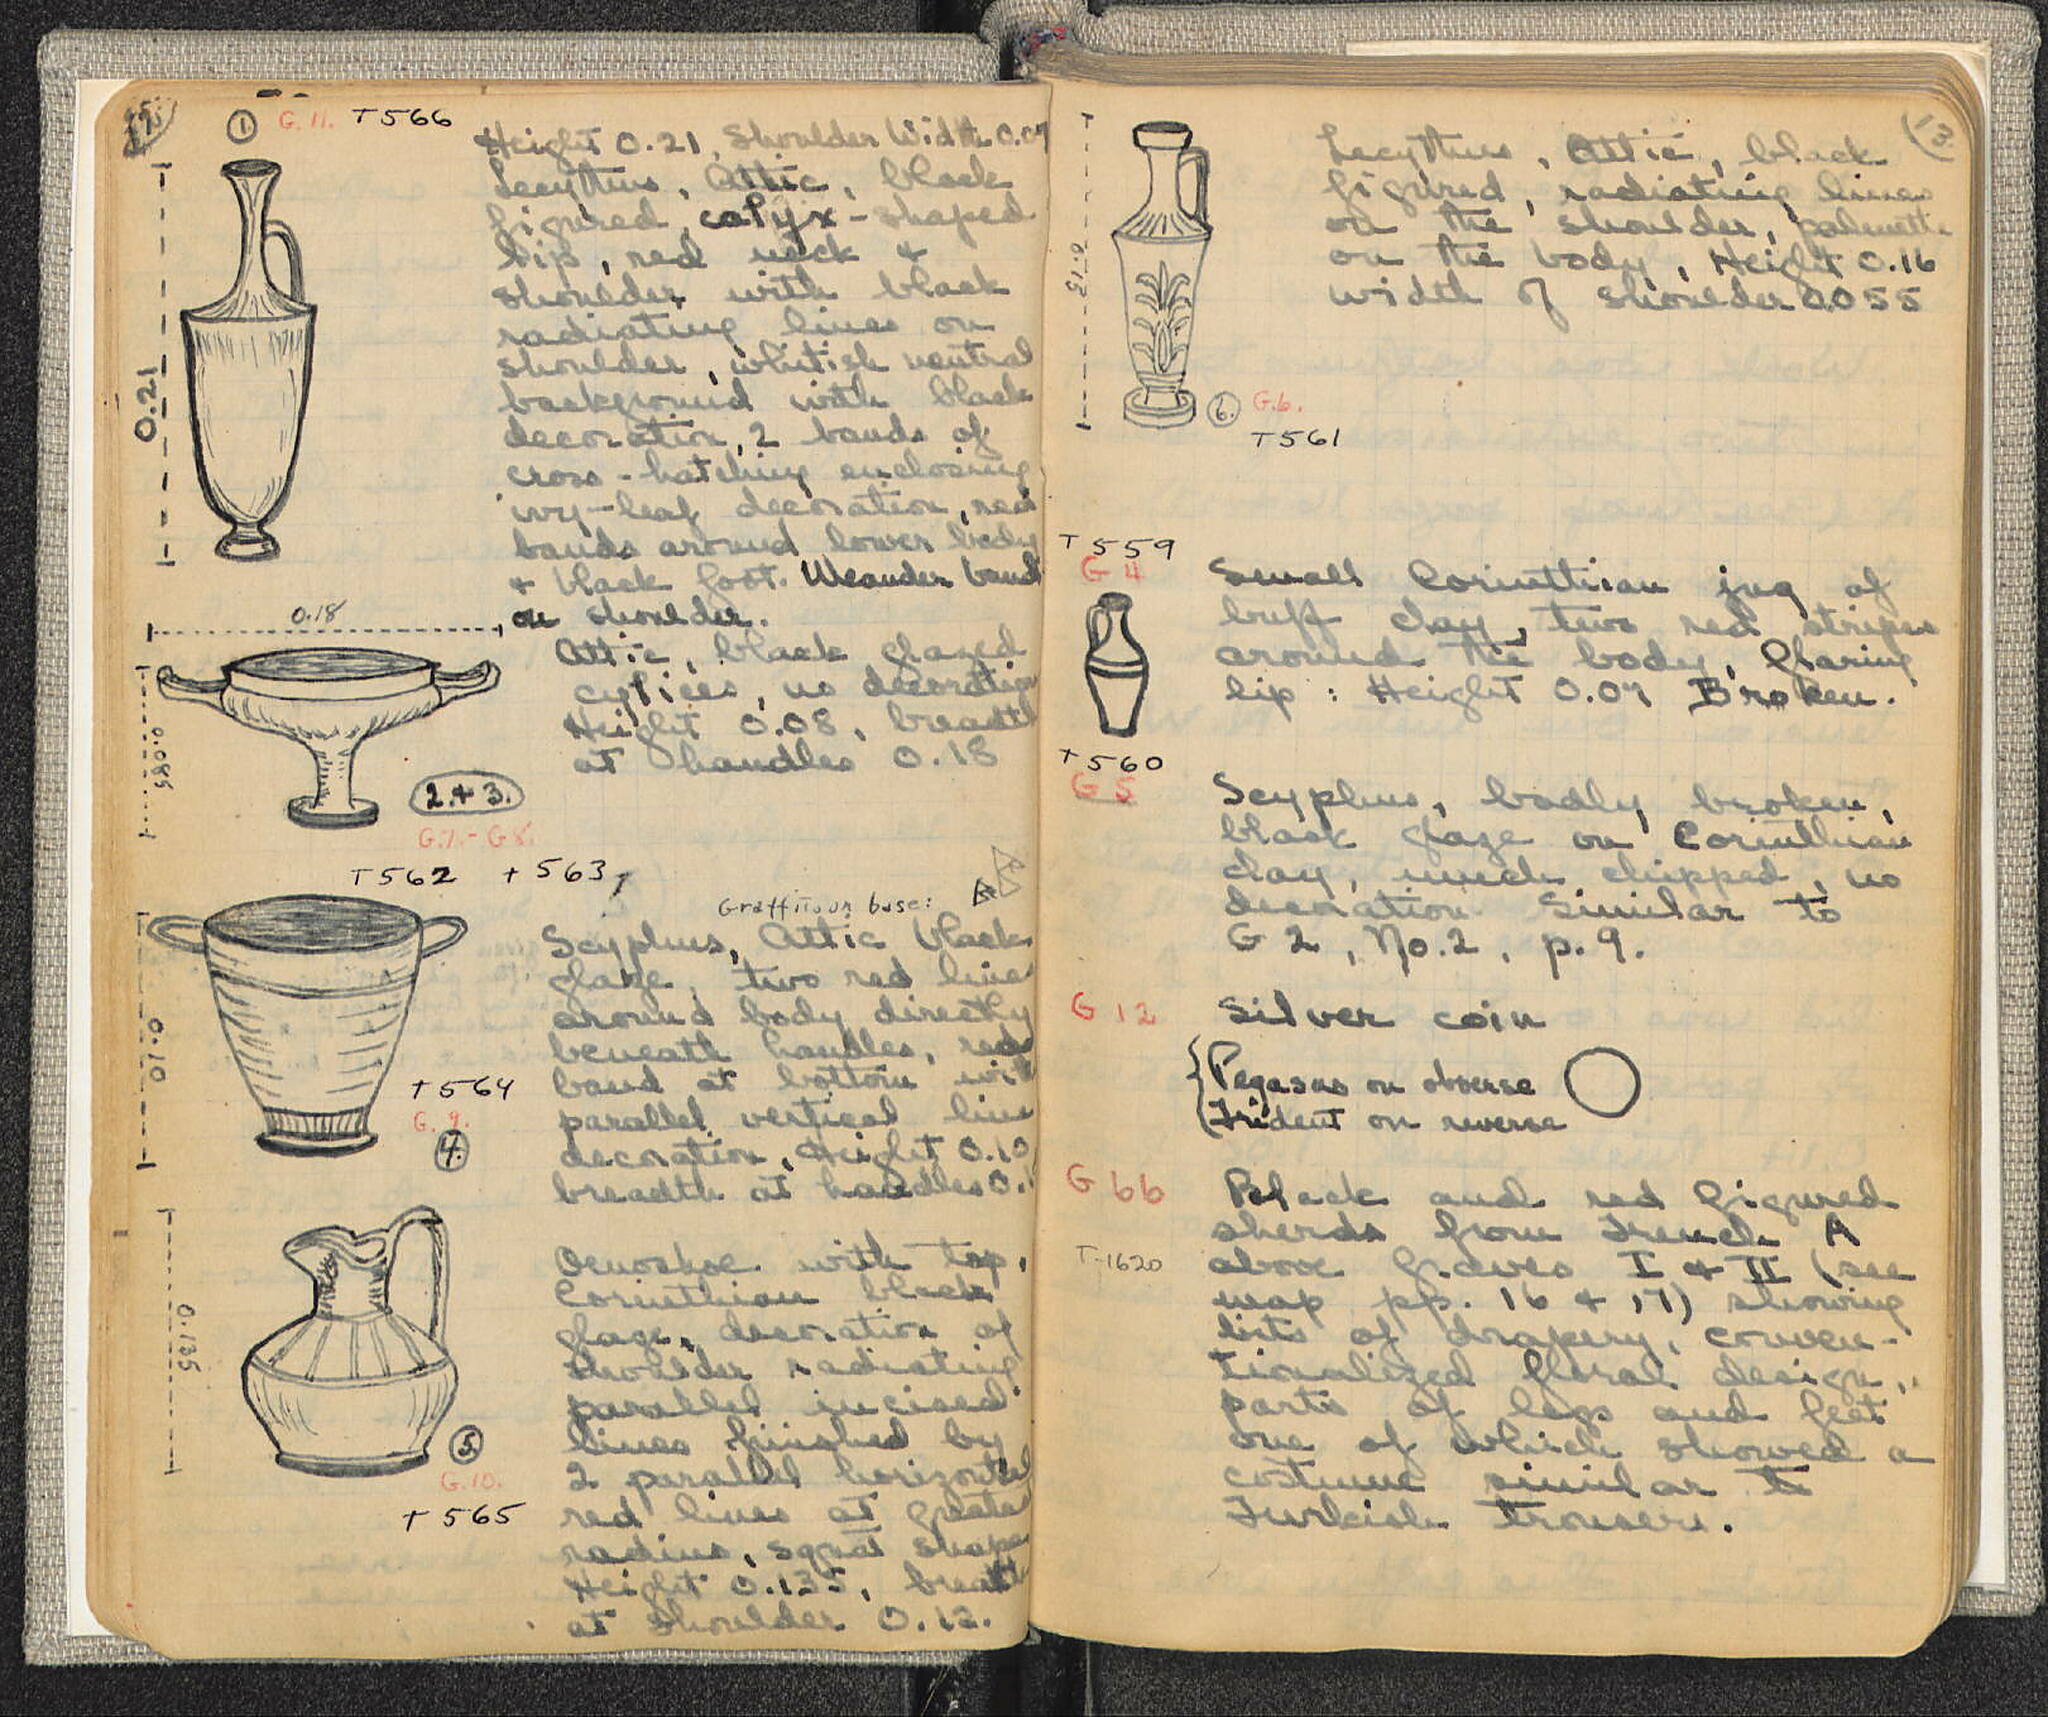 12.
1. G. 11. T 566
Height 0.21, Shoulder Width 0.07
Lecythus, Attic, black
figured, calyx-shaped
lip, red neck +
shoulder with black
radiating lines on
shoulder, whitish neutral
background with black
decoration, 2 bands of
cross-hatching enclosing
ivy-leaf decoration, red
bands around lower body
+ black foot. Meander band
on shoulder.
0.21
0.18
Attic, black glazed
cylices, no decoration
Height 0.08, breadth
at handles 0.18
0.085
2. + 3.
G. 7. - G 8.
T 562 + 563
Graffito on base:
Scyphus, Attic black
glaze, two red lines
around body directly
beneath handles, red
band at bottom with
parallel vertical line
decoration, Height 0.10,
breadth at handles 0.1
0.10
T 564
G. 9.
4.
Oenoskoe with top,
Corinthian black
glaze, decoration of
shoulder radiating
parallel incised
lines finished by
2 parallel horizontal
red lines at greatest
radius, squat shape
Height 0.135, breadth
at shoulder 0.12.
0.135
5.
G. 10.
T 565
13.
Lecythus, Attic, black
figured, radiating lines
on the shoulder, palmette
on the body, Height 0.16
width of shoulder 0.055
0.13
6. G. 6.
T 561
T 559
G 4
Small Corinthian jug of
buff clay, two red stripes
around the body, flaring
lip: Height 0.07 Broken.
T 560
G 5
Scyphus, badly broken,
black glaze on Corinthian
clay, much chipped, no
decoration. Similar to
G 2, No. 2, p. 9.
G 12 Silver coin
Pegasus on obverse
Trident on reverse
G 66 Black and red figured
sherds from Trench A
T-1620 above Graves I + II (see
map pp. 16 + 17) showing
bits of drapery, conven-
tionalized floral design,
parts of legs and feet
one of which showed a
costume similar to
Turkish trousers.